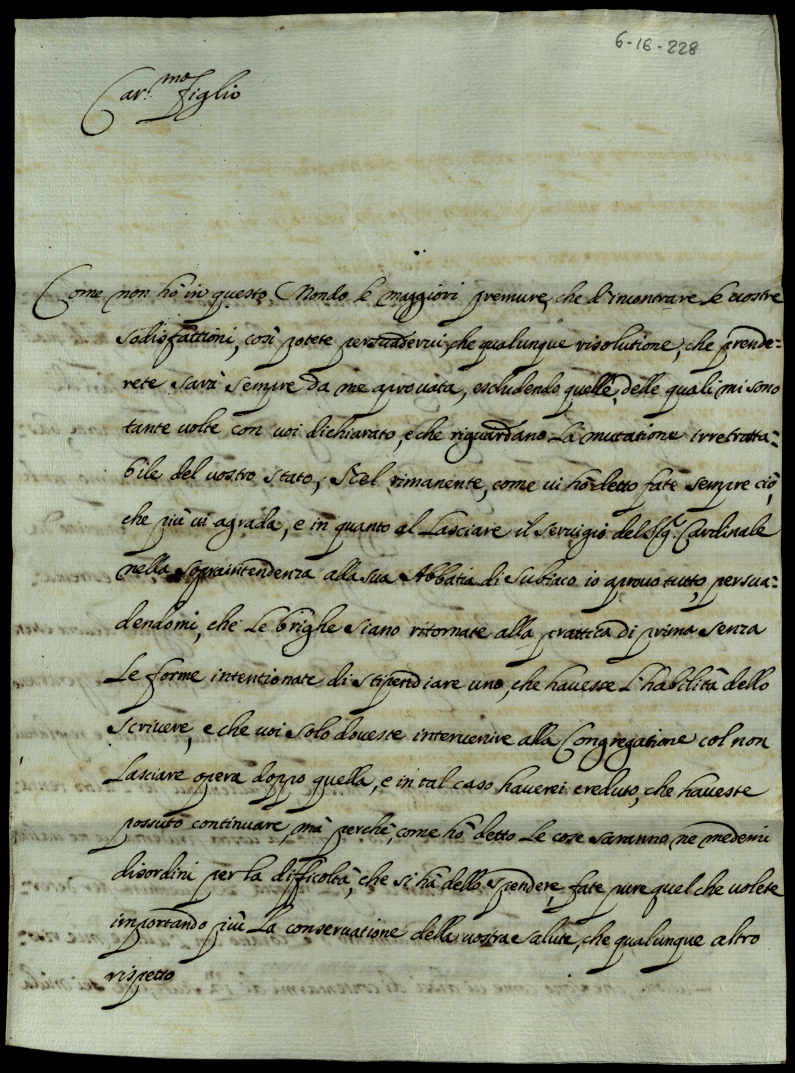 6-16-228
Car.mo figlio
Come non hò in questo Mondo le maggiori premure, che d'incontrare le vostre
sodisfattioni, così potete persuadervi, che qualunque risolutione, che prende-
rete sarà sempre da me aprovata, escludendo quelle, delle quali mi sono
tante volte con voi dichiarato, e che riguardano la mutatione irretratta-
bile del vostro stato; Nel rimanente, come vi hò detto fate sempre ciò,
che più vi agrada, e in quanto al lasciare il servigio del Sig.r Cardinale
nella sopraintendenza alla sua Abbatia di Subiaco io aprovo tutto, persua-
dendomi, che le brighe siano ritornate alla prattica di prima senza
le forme intentionate di stipendiare uno, che havesse l'habilità dello
scrivere, e che voi solo doveste intervenire alla Congregatione col non
lasciare opera doppo quella, e in tal caso haverei creduto, che haveste
possuto continuare, mà perchè, come hò detto le cose saranno ne medemi
disordini per la difficoltà, che si hà dello spendere, fate pure quel che volete
importando più la conservatione della vostra salute, che qualunque altro
rispetto